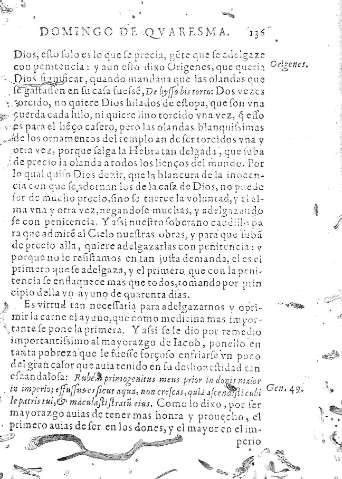 DOMINGO DE QVARESMA. 136
Dios, esto solo es lo que se precia, gẽte que se adelgaze
con penitencia: y aun esto dixo Origenes, que queria Origenes.
Dios significar, quando mandaua que las olandas que
se gastassen en su casa fuessẽ, De bysso bis torto: Dos vezes
torcido, no quiere Dios hilados de estopa, que son vna
cuerda cada hilo, ni quiere lino torcido vna vez, q̃ esso
es para el liẽço casero, pero las olandas blanquissimas
de los ornamentos del templo an de ser torcidos vna y
otra vez, porque salga la Hebra tan delgada, que suba
de precio la olanda a todos los lienços del mundo. Por
lo qual quiso Dios dezir, que la blancura de la inocen-
cia con que se adornan los de la casa de Dios, no puede
ser de mucho precio, sino se tuerce la voluntad, y el al-
ma vna y otra vez, negandose muchas, y adelgazando
se con penitencia. Y assi nuestro soberano caudillo pa
ra que admire al Cielo nuestras obras, y para que subã
de precio alla, quiere adelgazarlas con penitencia: y
porque no le resistamos en tan justa demanda, el es el
primero que se adelgaza, y el primero, que con la peni-
tencia se enflaquece mas que todos, tomando por prin
cipio della vn ayuno de quarenta dias.
Es virtud tan necessaria para adelgazarnos y opri-
mir la carne el ayuno, que como medicina mas impor-
tante se pone la primera. Y assi se le dio por remedio
importantissimo al mayorazgo de Iacob, ponello en
tanta pobreza que le fuesse forçoso enfriarse vn poco
del gran calor que auia tenido en su deshonestidad tan
escandalosa: Ruben primogenitus meus prior in donis maior
in imperio; effussus es sicut aqua, non crescas, quia ascendisti cubi Gen. 49.
le patris tui, & maculasti stratũ eius. Como lo dixo, por ser
mayorazgo auias de tener mas honra y prouecho, el
primero auias de ser en los dones, y el mayor en el im-
perio